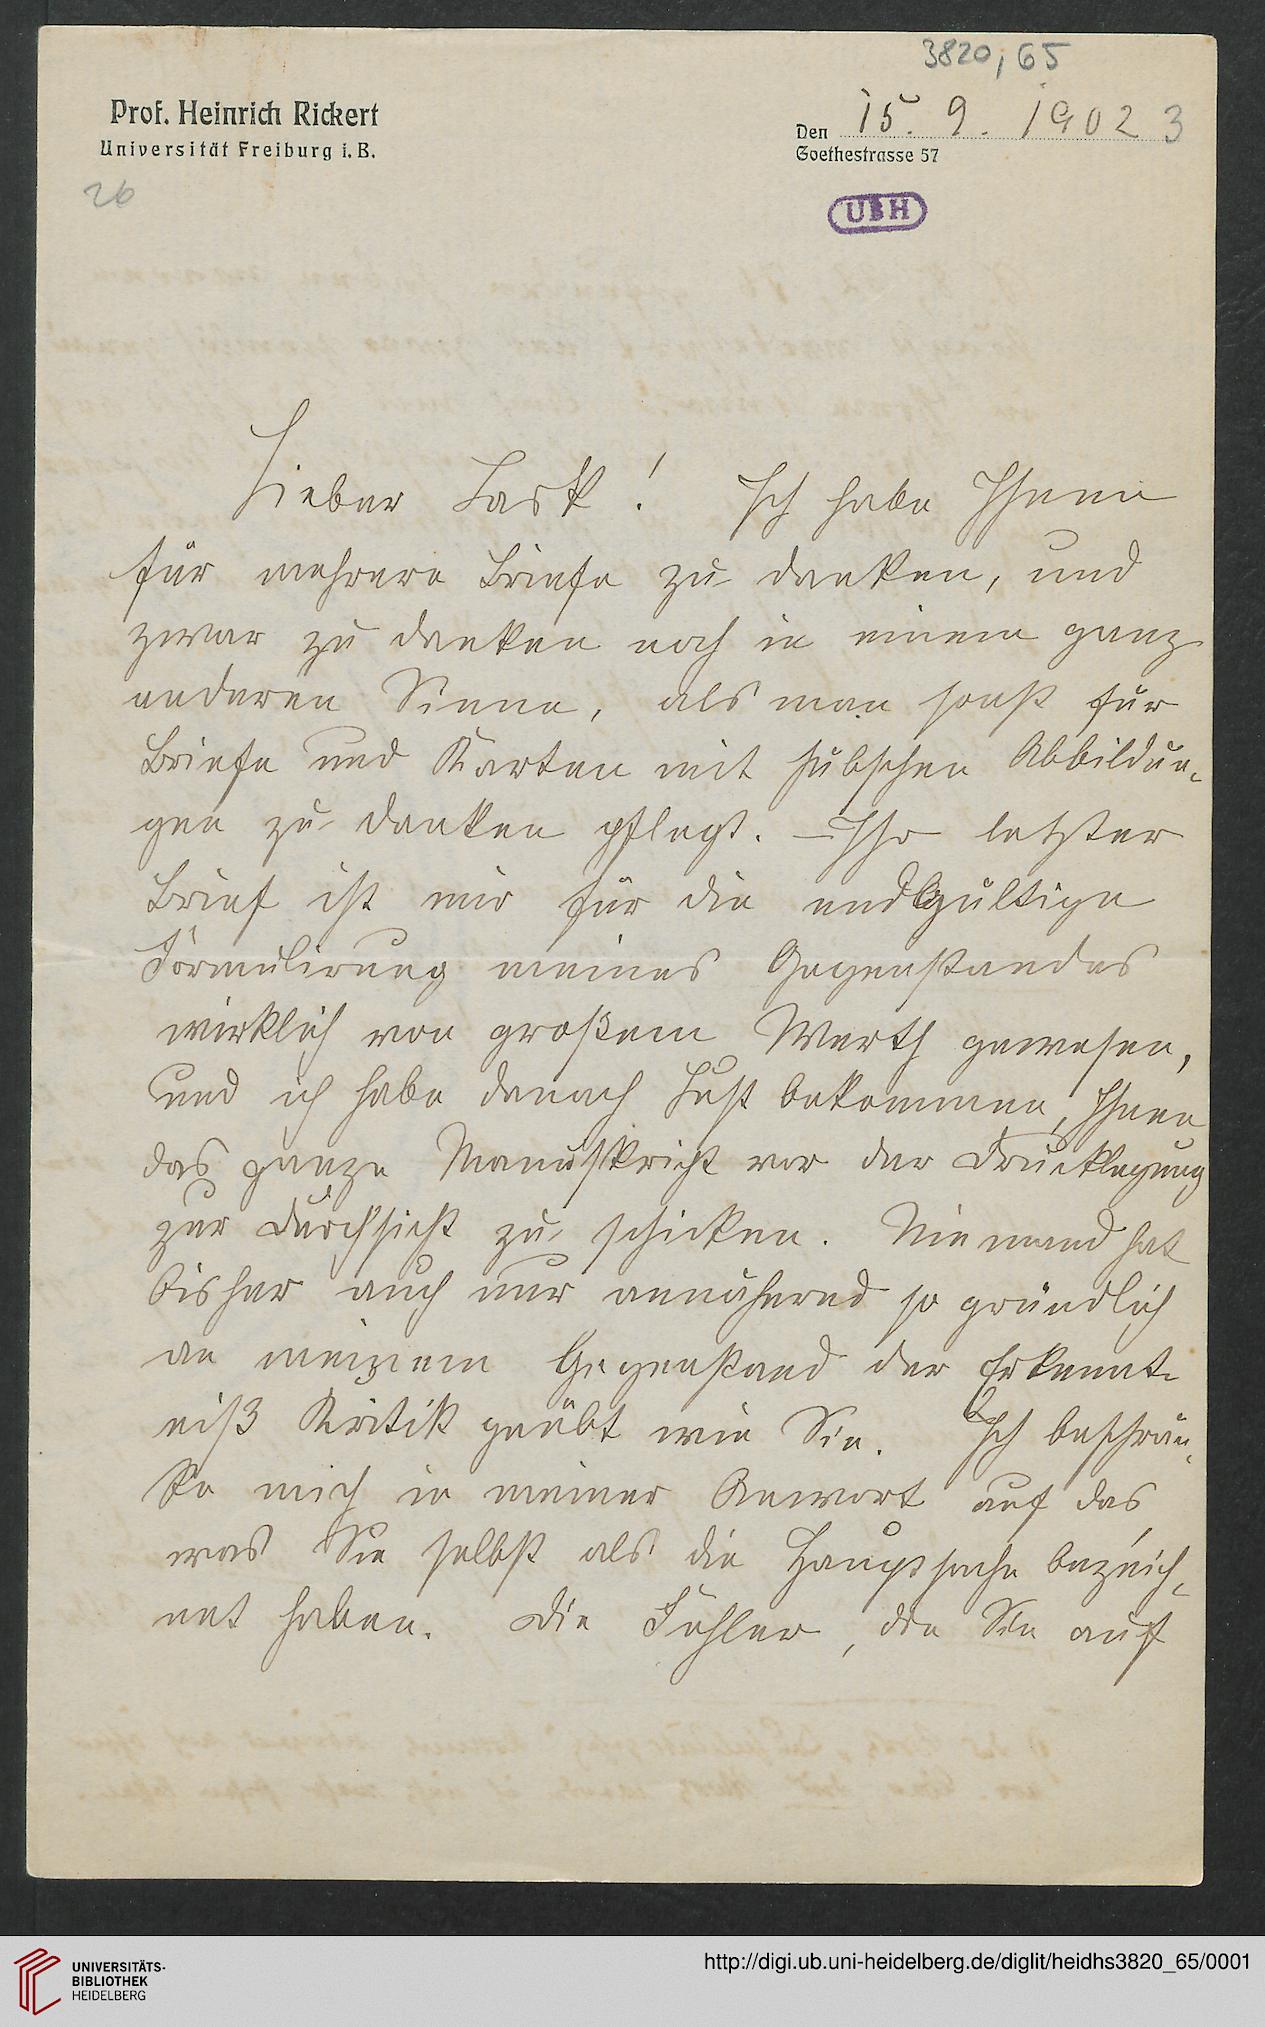 3820, 65
Prof. Heinrich Rickert
Universität Freiburg i. B.
Den 15. 9. 1902 3
Goethestrasse 57
26
UBH
Lieber Lask! Ich habe Ihnen
für mehrere Briefe zu danken, und
zwar zu danken noch in einem ganz
anderen Sinne, als man sonst für
Briefe und Karten mit hübschen Abbildun-
gen zu danken pflegt. – Ihr letzter
Brief ist mir für die endgültige
Formulirung meines Gegenstandes
wirklich von großem Werth gewesen,
und ich habe danach Lust bekommen, Ihnen
das ganze Manuskript vor der Drucklegung
zur Durchsicht zu schicken. Niemand hat
bisher auch nur annähernd so gründlich
an meinem Gegenstand der Erkennt-
niß Kritik geübt wie Sie. Ich beschrän-
ke mich in meiner Anwort auf das,
was Sie selbst als die Hauptsache bezeich-
net haben. Die Fühler, die Sie auf
UNIVERSITÄTS-
BIBLIOTHEK
HEIDELBERG
http://digi.ub.uni-heidelberg.de/diglit/heidhs3820_65/0001